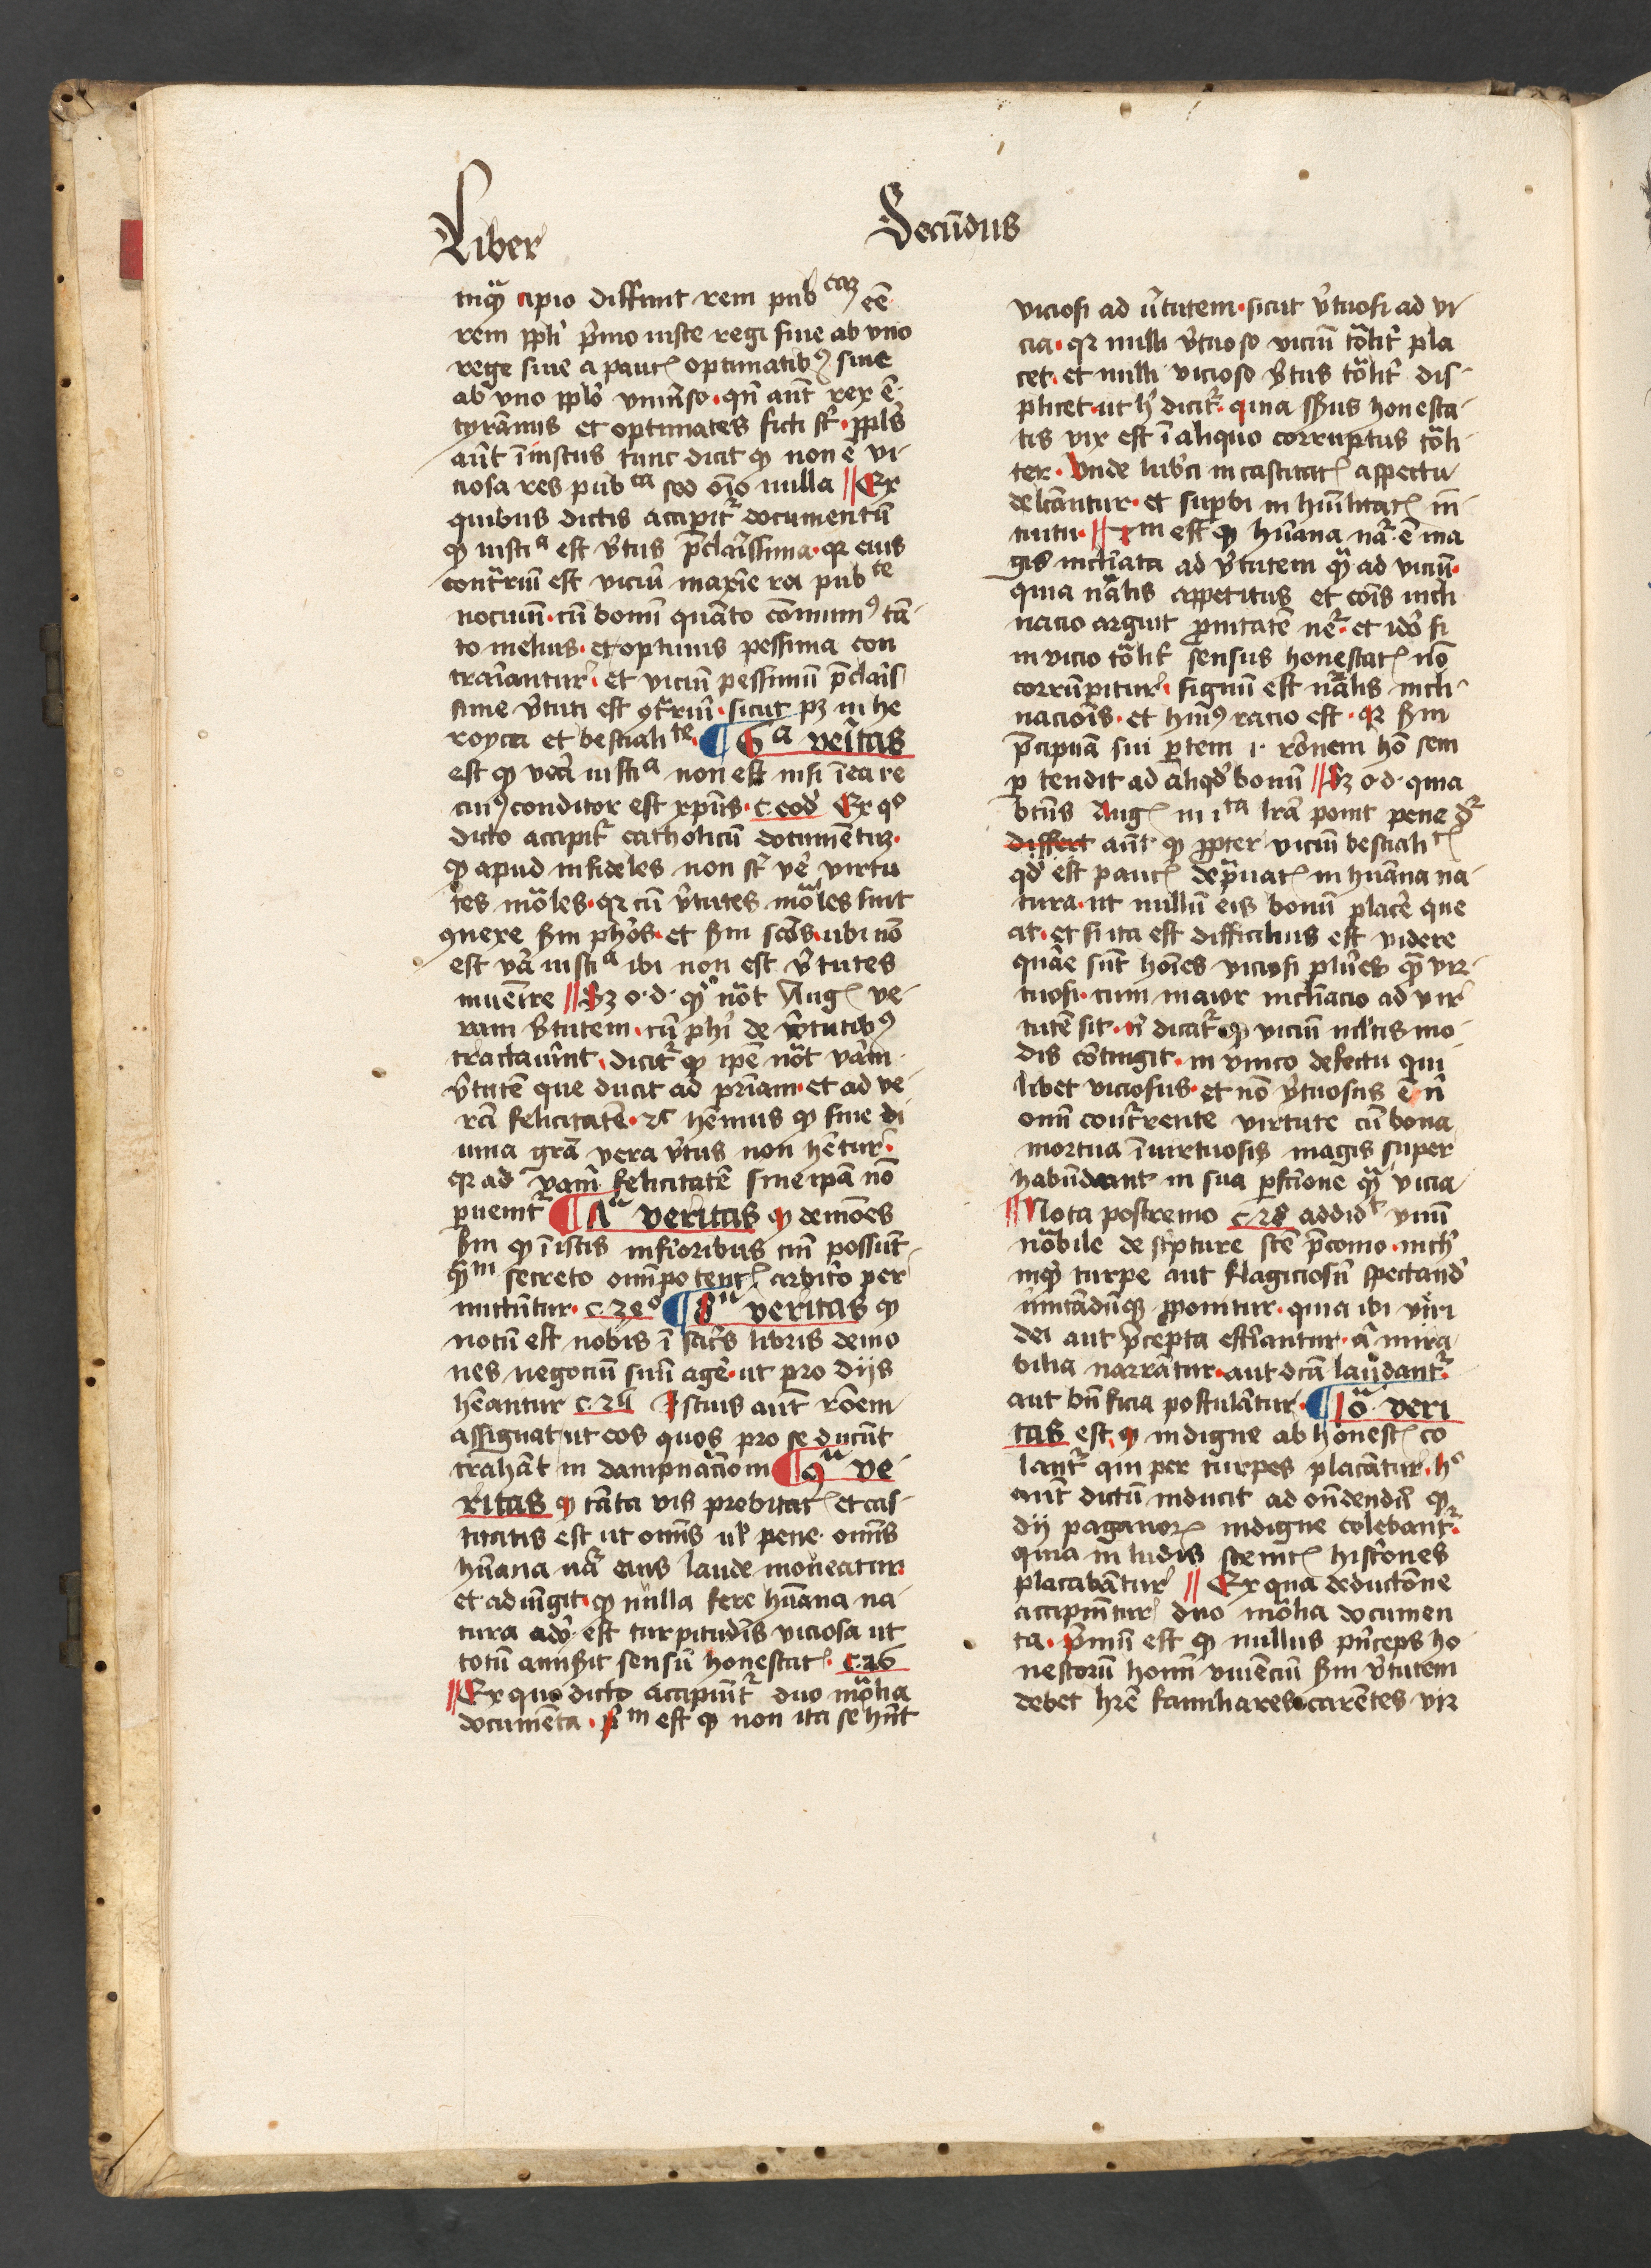 Liber Secūdus
inqͣ cipio diffiniit rem pubᶜᵃᵐ eē
rem ppl'i p̄mo iuste regi siue ab vno
rege siue a pauc' optimatib9 siue
ab vno pplō vniu'so · qn̄ aūt rex ē
tyrānus et optimates ficti st' · ppl's
aūt īiustus tunc dicit qͥ non ē vi
ciosa res pubᶜᵃ sed oīo nulla // Ex
quibus dictis accipit' documentū
qͥ iustiᵃ est v'tus p̄clarissima · qr eius
contrriū est viciū maxīe rei pubᶜᵉ
nociuū · cū bonū quāto cōmuni9 tā
to melius · et optimis pessima con
trariantur · et viciū pessimū p̄claris
sime v'tuti est 9trriū · sicut pz in he
royca et bestialiᵗᵉ · ¶ 6ᵃ veritas
est qͥ vera iustiᵃ non est nisi ī ea re
cui9 conditor est xpūs · c. eod' Ex q°
dicto accipit' catholicū documētuz ·
qͥ apud infideles non st' ve' virtu
tes moͣles · qr cū v'tutes moͣles sint
9nexe s'm phōs · et s'm scōs · ubi nō
est vͣa iustiᵃ ibi non est v'tutes
inuenire // Sz o · d · qͦmō nōt Aug' ve
ram v'tutem · cū phi' de v'tutib9
tractauīnt · dicit' qͥ ipē nōt vāin
v'tutē que ducit ad pr̄iam · et ad ve
rā felicitatē · 2c hēmus qͥ sine di
uina grā vera v'tus non hētur ·
qr ad vāin felicitatē sine ipā nō
puenit' ¶ Λᵃ veritas qͥ demōes
s'm qͥ ī istis inferioribus cm̄ possūt
qͣm secreto omīpotent' arbit'o per
mittūtur · c. 23° ¶ 8ᵃ veritas qͥ
notū est nobis ī sacr's libris demo
nes negociū suū agē · ut pro dijs
hēantur c. 24 Istuis aūt rōem
assignat ut eos quos pro se ducūt
trahāt in dampnacīom ¶ 9ᵃ ve
ritas qͥ tāta vis probitat' et cas
titatis est ut omīs ul' pene omīs
hūana naͣ eius laude moueatur
et adiūgit · qͥ nulla fere hūana na
tura adō est turpitudīs viciosa ut
totū amiserit sensū honestat' · c. 26
// Ex quo dicto accipiūt' duo moͣlia
documēta · p'm est qͥ non ita se hn̄t
viciosi ad v'tutem · sicut v'tuosi ad vi
cia · qr nulli v'tuoso viciū toͣlit' pla
cet · et nulli vicioso v'tus toͣlit' dis
plicet · ut h' dicit' · quia sensus honesta
tis vix est ī aliquo corruptus toͣli
ter · Vnde lub'ci in castitat' aspectu
delcāntur · et supbi in hūilitat' in
tuitu // 2m est qͥ hūana naͣ ē ma
gis inclīata ad v'tutem qͣ ad viciū
quia nāͣlis appetitus et cōis incli
nacio arguit ꝓnitatē ne' · et idō si
in vicio toͣlit' sensus honestat' nō
corrūpitur · signū est nāͣlis incli
nacōis · et hui9 racio est · qr s'm
p̄cipuā sui p̄tem · i · rōnem hō sem
p tendit ad aliqd' bonū // Sz o · d · quia
btūs Aug' in 1ᵗᵃ lrā ponit pene dr'
differt aūt qͥ ꝓpter viciū bestialiᵗ'
qd' est pauc' depͣuat' in hūana na
tura · ut nullū eis bonū placē que
at · et si ita est difficilius est videre
quāe sūt hoīes viciosi plūes qͣ vir
tuosi · cum maior inclīacio ad vir
tutē sit · n' dicat' qͥ viciū ml'tis mo
dis cōtingit · in vnico defectu qui
libet viciosus · et nō v'tuosus ē n'
omī concurrente virtute cū bona
mortua ī virtuosis magis super
habūdant in sua pfcīone qͣ vicia
// Nota postremo c. 28 addidᵗ vnū
nōͣbile de sc'pture scē p̄conio · nich'
inqͥ turpe aut flagiciosū spectand'
īmitādūqͥ ꝓponitur · quia ibi veri
dei aut p̄cepta estīantur · a' mira
bilia narrātur · aut dōa laudant'
aut bn̄ficia postulātur · ¶ 10ᵃ veri
tas est qͥ indigne ab honest' co
lant' qui per turpes placātur · h°
aūt dictū inducit ad oñdendū qͥ
dij paganor' indigne colebant' ·
quia in ludis scenic' histriones
placabātur // Ex qua deductōne
accipiūtur duo moͣlia documen
ta · p'mū est qͥ nullus p'nceps ho
nestorū hoīm viuēciū s'm v'tutem
debet hrē familiares carētes vir